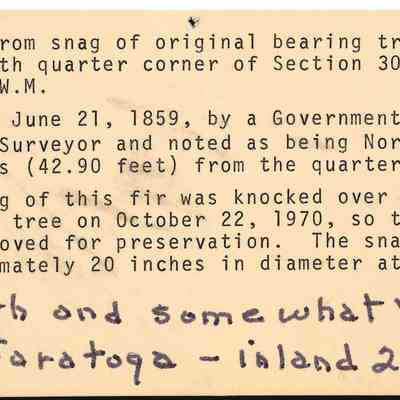 rom snag of original bearing tr
th quarter corner of Section 30
W.M.
June 21, 1859, by a Government
Surveyor and noted as being Nor
s (42.90 feet) from the quarter
g of this fir was knocked over
tree on October 22, 1970, so t
oved for preservation. The sna
mately 20 inches in diameter at
th and somewhat
aratoga - inland 2